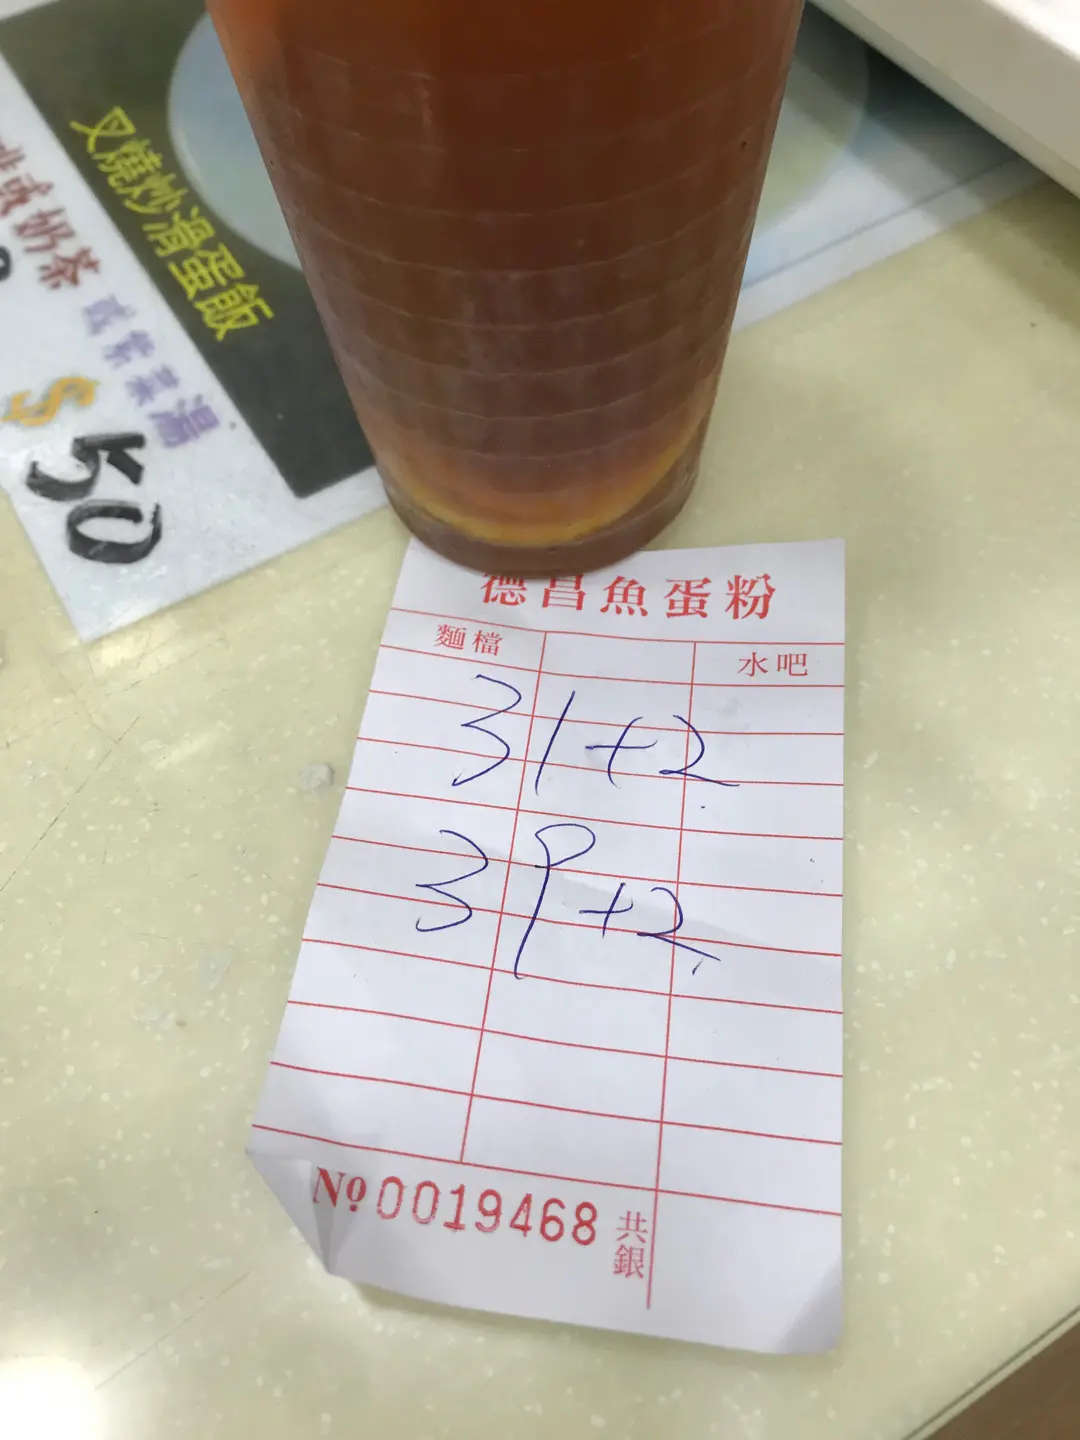 叉燒炒滑蛋飯
奶茶
或紫菜湯
$50
德昌魚蛋粉
麵檔
水吧
31+2
39+2
No 0019468
共銀